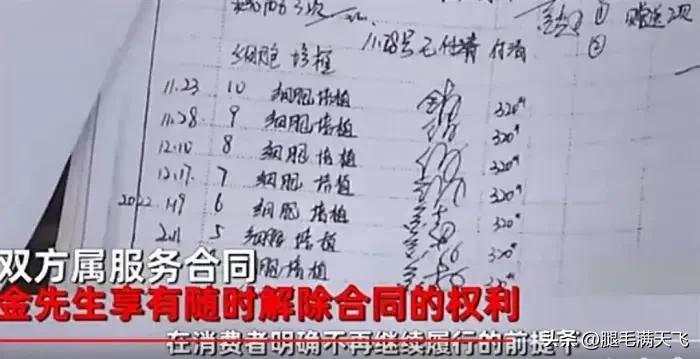 细胞培植 11.28号已付清 付清
赠送2项
②
11.23 10 细胞培植 320
11.28 9 细胞培植 320
12.10 8 细胞培植 320
12.17 7 细胞培植 320
2022.1.9 6 细胞培植 320
2.11 5 细胞培植 320
胞培植 320
双方属服务合同
金先生享有随时解除合同的权利
在消费者明确不再继续履行的前提下
头条 @腿毛满天飞